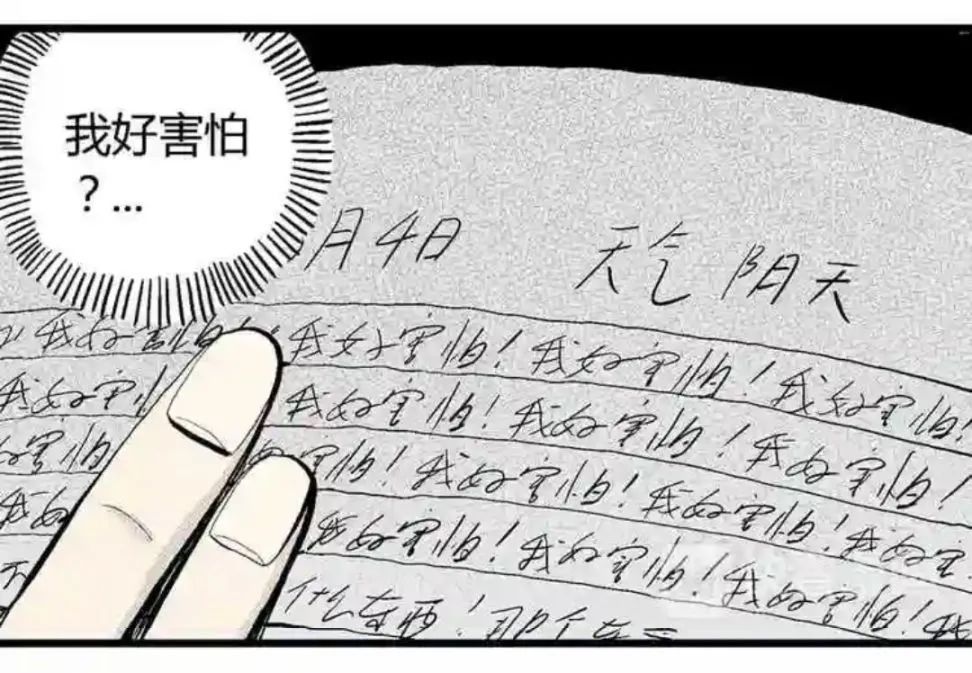 我好害怕
？...
月4日 天气 阴天
我好害怕！我好害怕！我好害怕！我好害怕！
我好害怕！我好害怕！我好害怕！
好害怕 害怕！我好害怕！我好害怕！我好害
我好 我好害怕！我好害怕！我好害怕！我
什么东西！那个东西